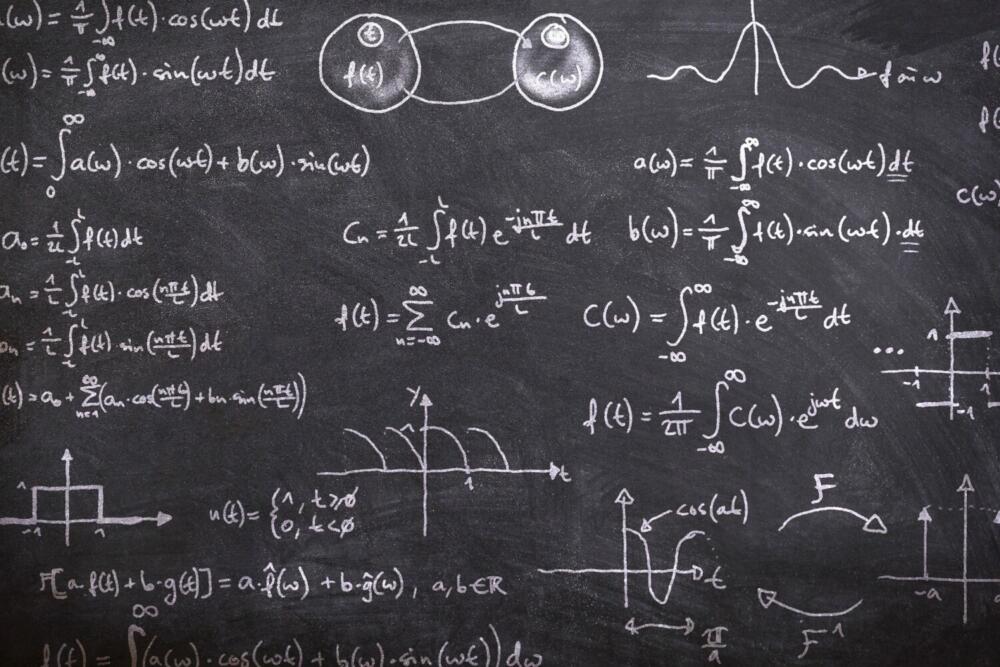 (ω) = 1/π ∫_{-∞} f(t)·cos(ωt) dt
(ω) = 1/π ∫_{-∞}^{∞} f(t)·sin(ωt) dt
t
f(t)
c(ω)
f ω
f(
f(
(t) = ∫_0^∞ a(ω)·cos(ωt) + b(ω)·sin(ωt)
a(ω) = 1/π ∫_{-∞}^{∞} f(t)·cos(ωt) dt
c(ω)
a₀ = 1/2L ∫_{-L}^{L} f(t) dt
Cn = 1/2L ∫_{-L}^{L} f(t) e^{-jnπt/L} dt
b(ω) = 1/π ∫_{-∞}^{∞} f(t)·sin(ωt)·dt
an = 1/L ∫_{-L}^{L} f(t)·cos(nπt/L) dt
f(t) = ∑_{n=-∞}^{∞} Cn·e^{jnπt/L}
C(ω) = ∫_{-∞}^{∞} f(t)·e^{-jnπt/L} dt
bn = 1/L ∫_{-L}^{L} f(t)·sin(nπt/L) dt
...
1
-1
-1
(t) = a₀ + ∑_{n=1}^{∞} (an·cos(nπt/L) + bn·sin(nπt/L))
f(t) = 1/2π ∫_{-∞}^{∞} C(ω)·e^{jωt} dω
y
1
1
t
1
-1
1
u(t) = {1, t≥0
0, t<0
cos(at)
t
π/a
F
F^{-1}
-a
a
F[a·f(t) + b·g(t)] = a·f̂(ω) + b·ĝ(ω), a,b∈ℝ
f(t) = ∫^{∞} (a(ω)·cos(ωt) + b(ω)·sin(ωt)) dω